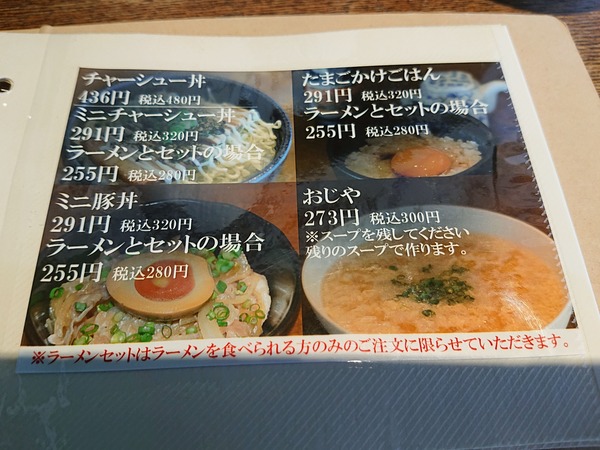 チャーシュー丼
436円 税込480円
ミニチャーシュー丼
291円 税込320円
ラーメンとセットの場合
255円 税込280円
たまごかけごはん
291円 税込320円
ラーメンとセットの場合
255円 税込280円
ミニ豚丼
291円 税込320円
ラーメンとセットの場合
255円 税込280円
おじや
273円 税込300円
※スープを残してください
残りのスープで作ります。
※ラーメンセットはラーメンを食べられる方のみのご注文に限らせていただきます。